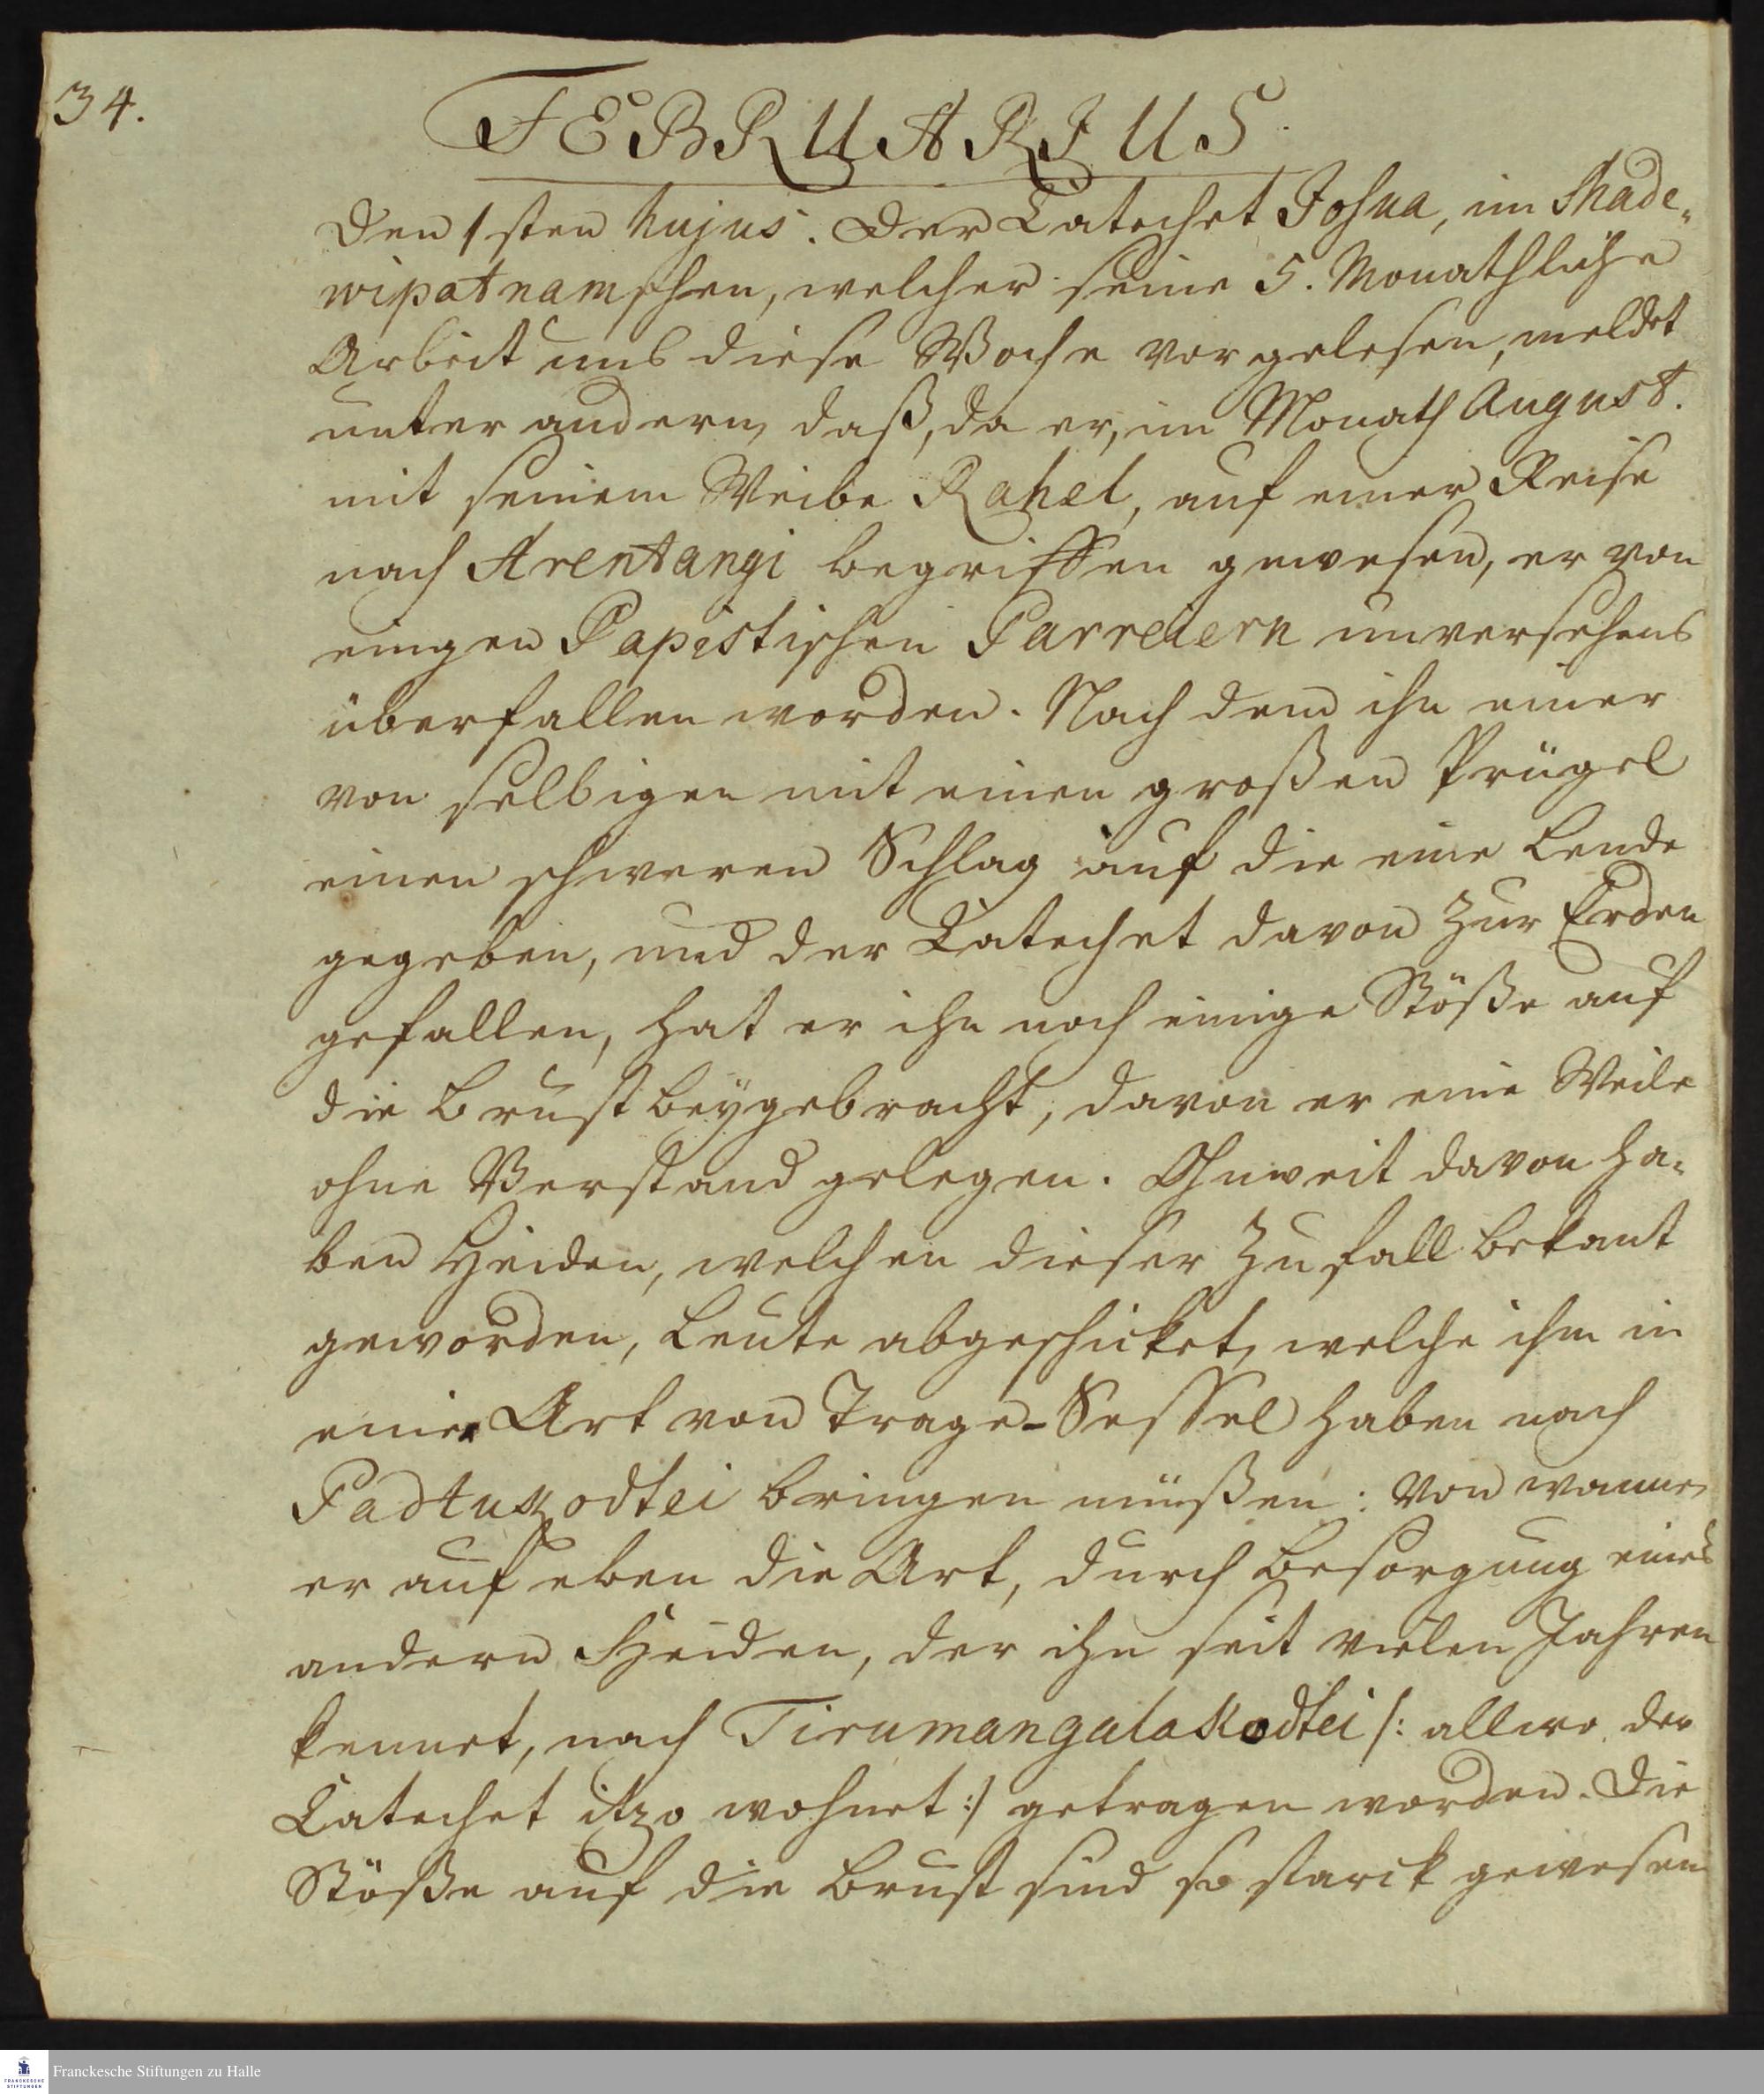 34.
FEBRUARIUS
Den 1sten hujus. Der Catechet Josua, im Made„
wipatnamschen, welcher seine 5. Monathliche
Arbeit uns diese Woche vorgelesen, meldet
unter andern, daß, da er, im Monath August.
mit seinem Weibe Rahel, auf einer Reise
nach Arentangi begriffen gewesen, er von
einigen Papistischen Parreiern unversehens
überfallen worden. Nach dem ihn einer
von selbigen mit einen großen Prügel
einen schweren Schlag auf die eine Lende
gegeben, und der Catechet davon zur Erden
gefallen, hat er ihn noch einige Stöße auf
die Brust beygebracht, davon er eine Weile
ohne Verstand gelegen. Ohnweit davon ha-
ben Heiden, welchen dieser Zufall bekant
geworden, Leute abgeschicket, welche ihm in
einer Art von Trage-Sessel haben nach
Padtukodtei bringen müßen: Von wannen
er auf eben die Art, durch Besorgung eines
andern Heiden, der ihn seit vielen Jahren
kennet, nach Tirumangalakodtei /: allwo der
Catechet itzo wohnet :/ getragen worden. Die
Stöße auf die Brust sind so starck gewesen
Franckesche Stiftungen zu Halle
FRANCKESCHE
STIFTUNGEN